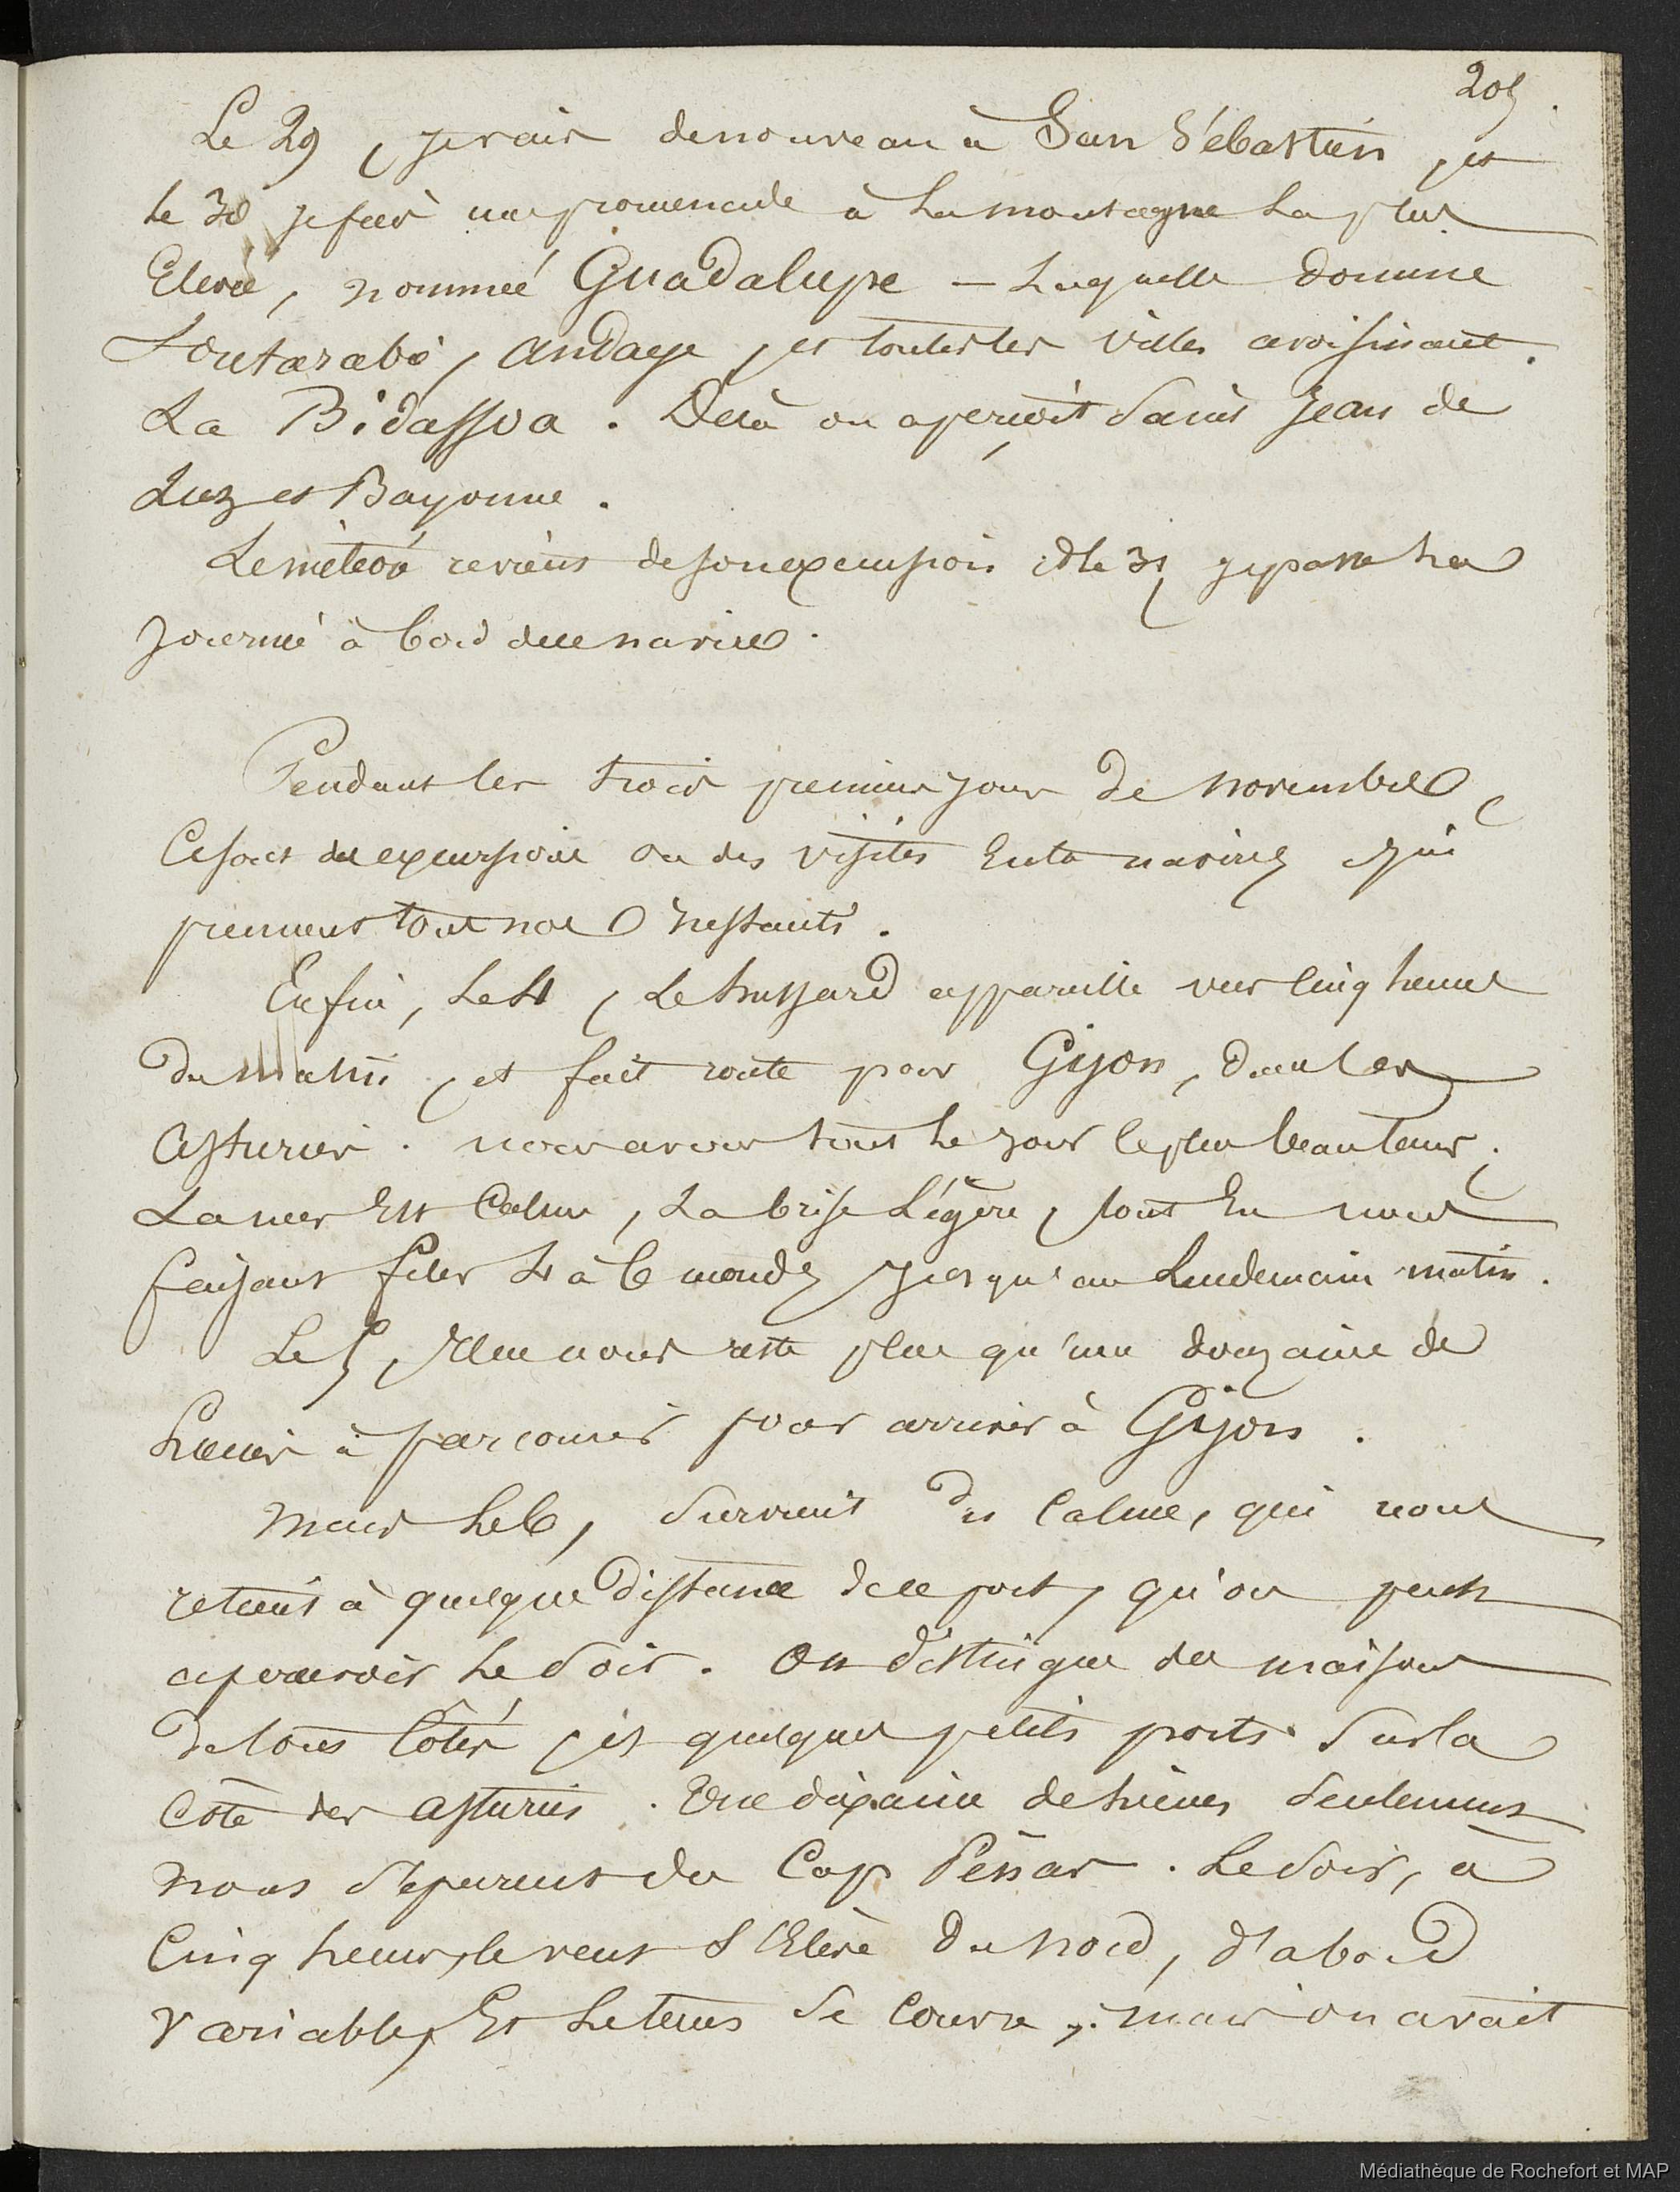 205
Le 29, je vais de nouveau à San Sébastien, et
le 30 je fais une promenade à la montagne la plus
Elevée, nommée Guadalupe — Laquelle domine
Fontarabi, Andaye, et toutes les villes avoisinant
La Bidassoa. De là on aperçoit Saint Jean de
Luz et Bayonne.
Le météore revient de son excursion et le 31 je passe la
journée à bord de ce navire.
Pendant les trois premiers jours de novembre,
Ce sont des excursions ou des visites Entre navires qui
prennent tous nos Instants.
Enfin, Le 4, Le hussard appareille vers Cinq heures
du matin, et fait route pour Gijon, dans les
Asturies. nous avons tout le jour le plus beau temps;
La mer Est Calme, La brise Légère, tout En nous
faisant filer 4 à 6 nœuds jusqu'au Lendemain matin.
Le 5, Il ne nous reste plus qu'une douzaine de
Lieues à parcourir pour arriver à Gijon.
Mais Le 6, Survient du Calme, qui nous
retient à quelque distance de ce port, qu'on peut
apercevoir Le Soir. On distingue des maisons
de tous Côtés, et quelques petits ports Sur la
Côte des Asturies. Une dixaine de Lieues Seulement
nous Séparent du Cap Peñas. Le Soir, à
Cinq heures, le vent S'Elève du Nord, d'abord
variable, Et Le temps Se Couvre; mais on avait
Médiathèque de Rochefort et MAP